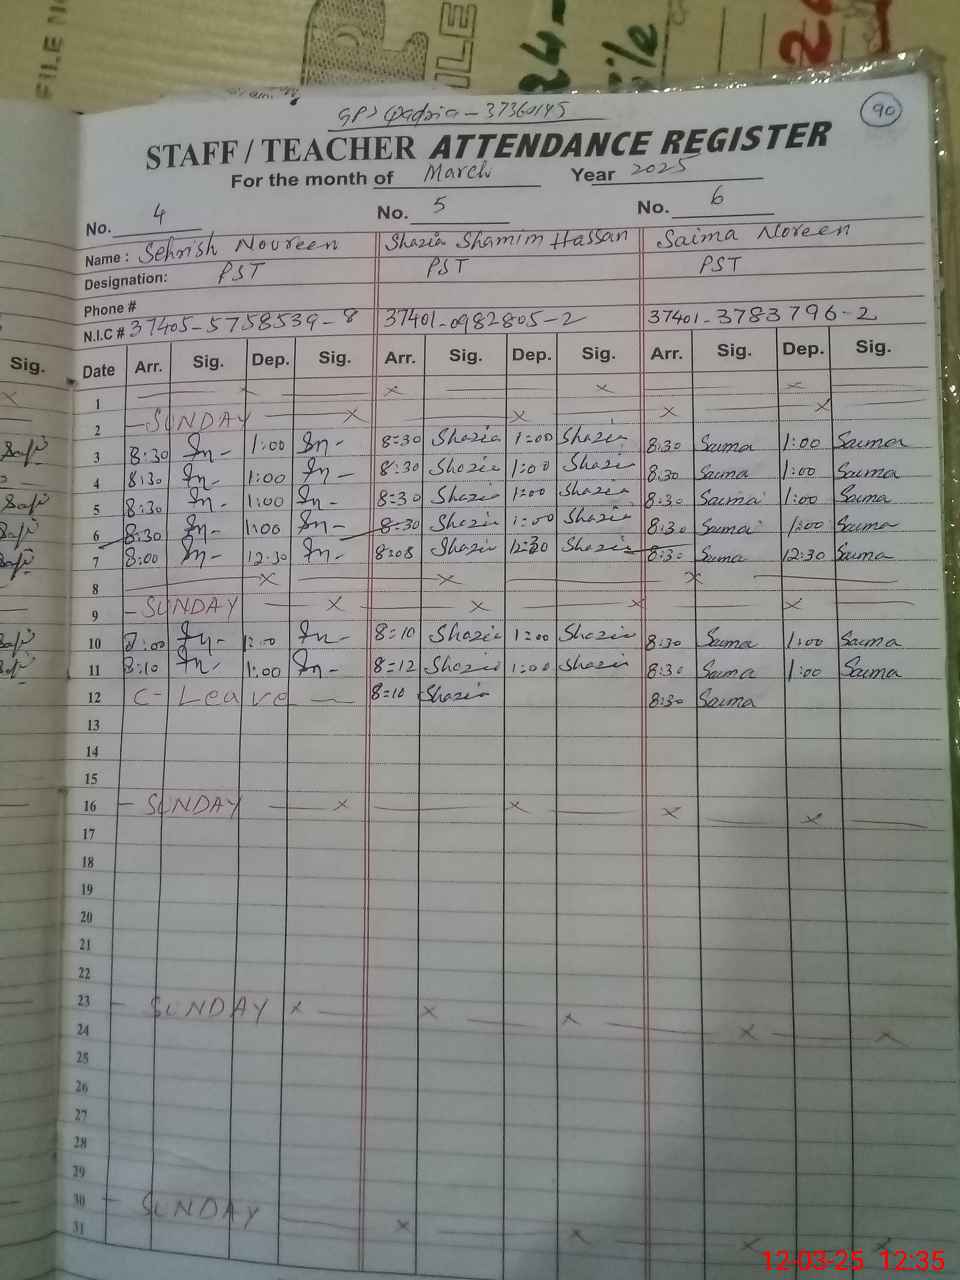 FILE NO
FILE
GPS Qadria - 37360145
90
STAFF / TEACHER ATTENDANCE REGISTER
For the month of March Year 2025
No. 4 No. 5 No. 6
Name : Sehrish Noureen Shazia Shamim Hassan Saima Noreen
Designation: PST PST PST
Phone #
N.I.C # 37405-5758539-8 37401-0982805-2 37401-3783796-2
Sig. Date Arr. Sig. Dep. Sig. Arr. Sig. Dep. Sig. Arr. Sig. Dep. Sig.
1 — x — x — x — x —
2 — SUNDAY — x — x — x — x —
3 8:30 Sn- 1:00 Sn- 8:30 Shazia 1:00 Shazia 8:30 Saima 1:00 Saima
4 8:30 Sn- 1:00 Sn- 8:30 Shazia 1:00 Shazia 8:30 Saima 1:00 Saima
5 8:30 Sn- 1:00 Sn- 8:30 Shazia 1:00 Shazia 8:30 Saima 1:00 Saima
6 8:30 Sn- 1:00 Sn- 8:30 Shazia 1:00 Shazia 8:30 Saima 1:00 Saima
7 8:00 Sn- 12:30 Sn- 8:08 Shazia 12:30 Shazia 8:30 Saima 12:30 Saima
8 — x — x — x —
9 — SUNDAY — x — x — x — x —
10 Sn- Sn- 8:10 Shazia 1:00 Shazia 8:30 Saima 1:00 Saima
11 8:10 Sn- 1:00 Sn- 8:12 Shazia 1:00 Shazia 8:30 Saima 1:00 Saima
12 C- Leave — 8:10 Shazia 8:30 Saima
13
14
15
16 — SUNDAY — x — x — x — x —
17
18
19
20
21
22
23 — SUNDAY x — x — x — x — x
24
25
26
27
28
29
30 — SUNDAY — x — x — x — x
31
12-03-25 12:35